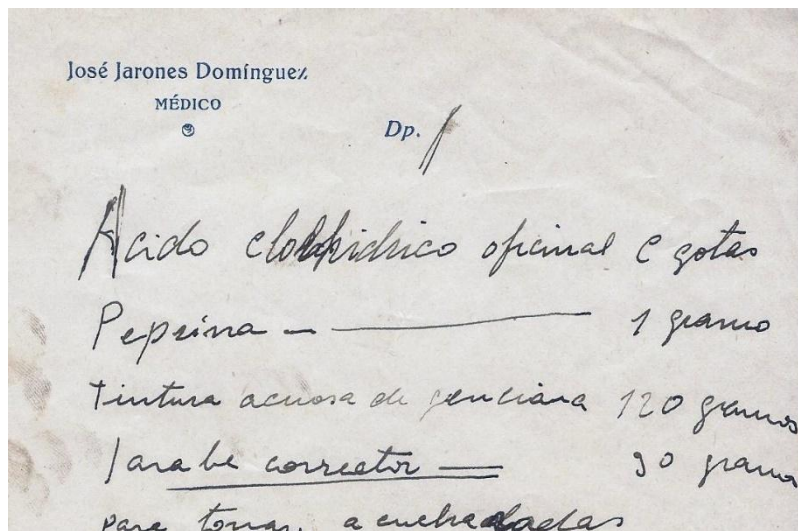 José Jarones Domínguez
MÉDICO
Dp. /
Acido clorhidrico oficinal C gotas
Pepsina — 1 gramo
Tintura acuosa de genciana 120 gramos
Jarabe corrector — 90 gramos
para tomar a cucharadas